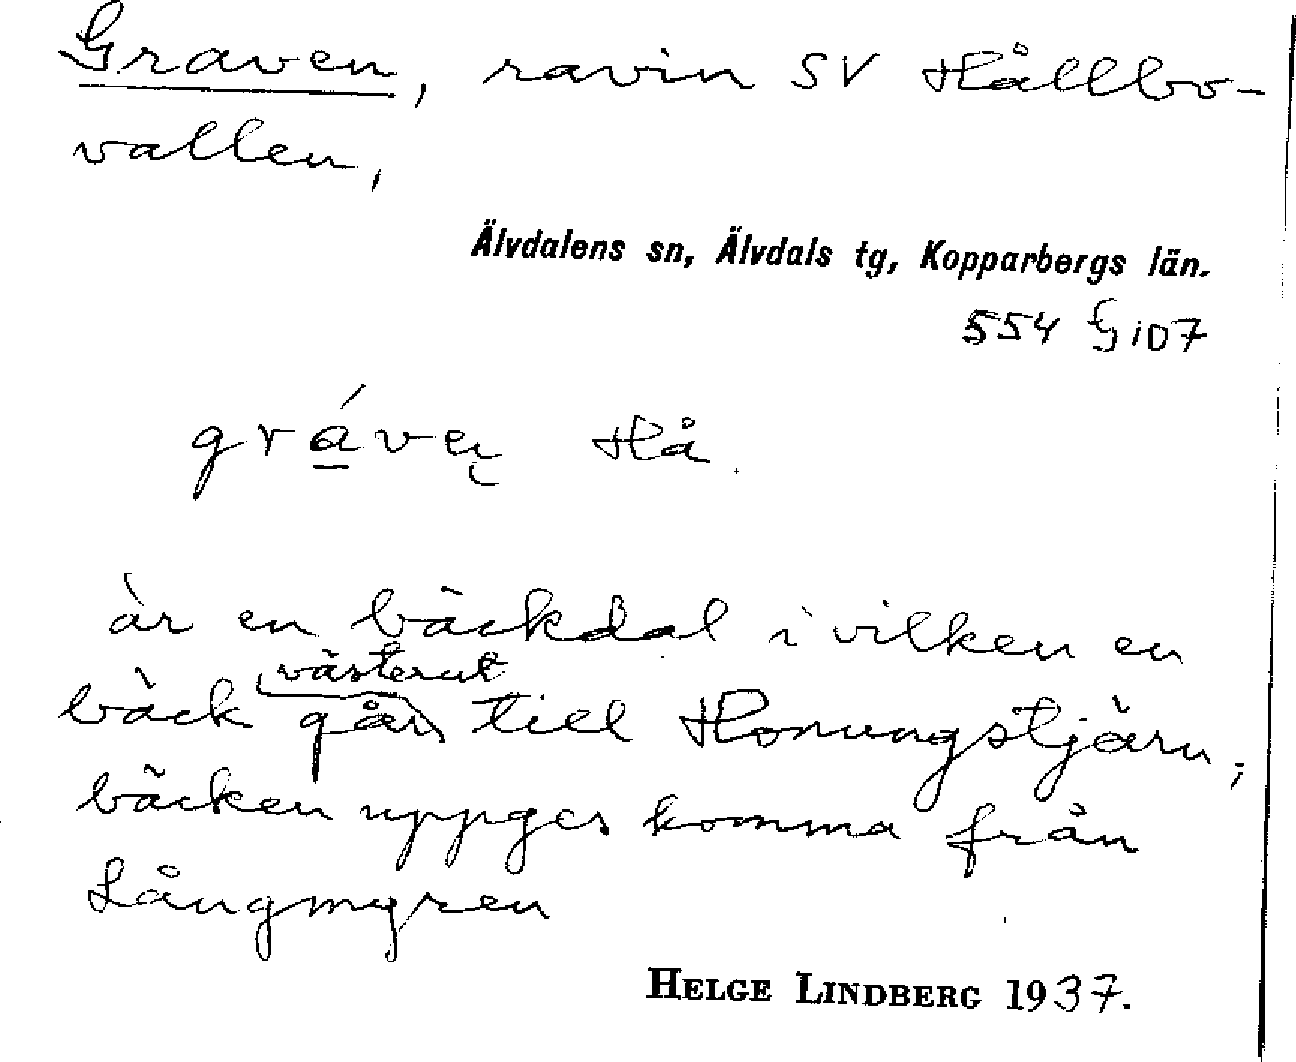 Graven, ravin SV Hållbo-
vallen,
Älvdalens sn, Älvdals tg, Kopparbergs län.
554 § 107
grávęn Hå.
är en bäckdal i vilken en
västerut
bäck går till Honungstjärn;
bäcken uppges komma från
Långmyren
HELGE LINDBERG 1937.